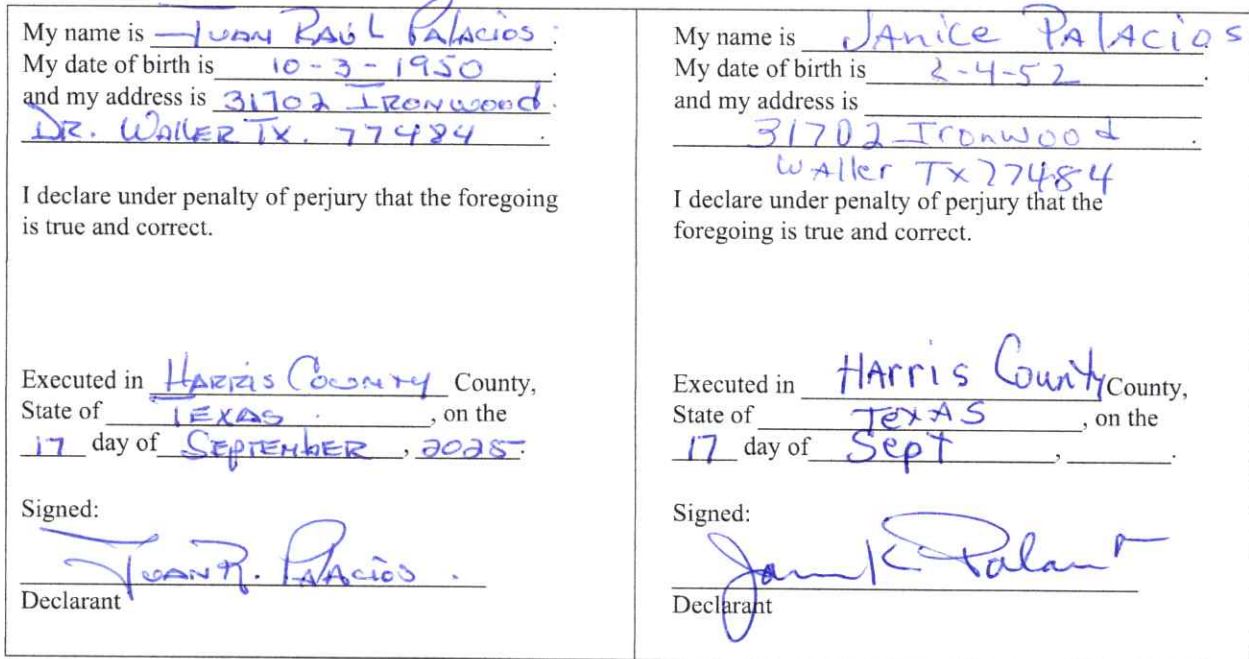 My name is JUAN RAÚL PALACIOS.
My date of birth is 10-3-1950.
and my address is 31702 IRONWOOD.
DR. WALLER TX. 77484.
I declare under penalty of perjury that the foregoing
is true and correct.
Executed in HARRIS COUNTY County,
State of TEXAS, on the
17 day of SEPTEMBER, 2025.
Signed:
JUAN R. PALACIOS.
Declarant
My name is JANice PALACIOS
My date of birth is 2-4-52.
and my address is
31702 Ironwood.
WAller TX 77484
I declare under penalty of perjury that the
foregoing is true and correct.
Executed in HArris County County,
State of TexAS, on the
17 day of Sept, .
Signed:
Declarant